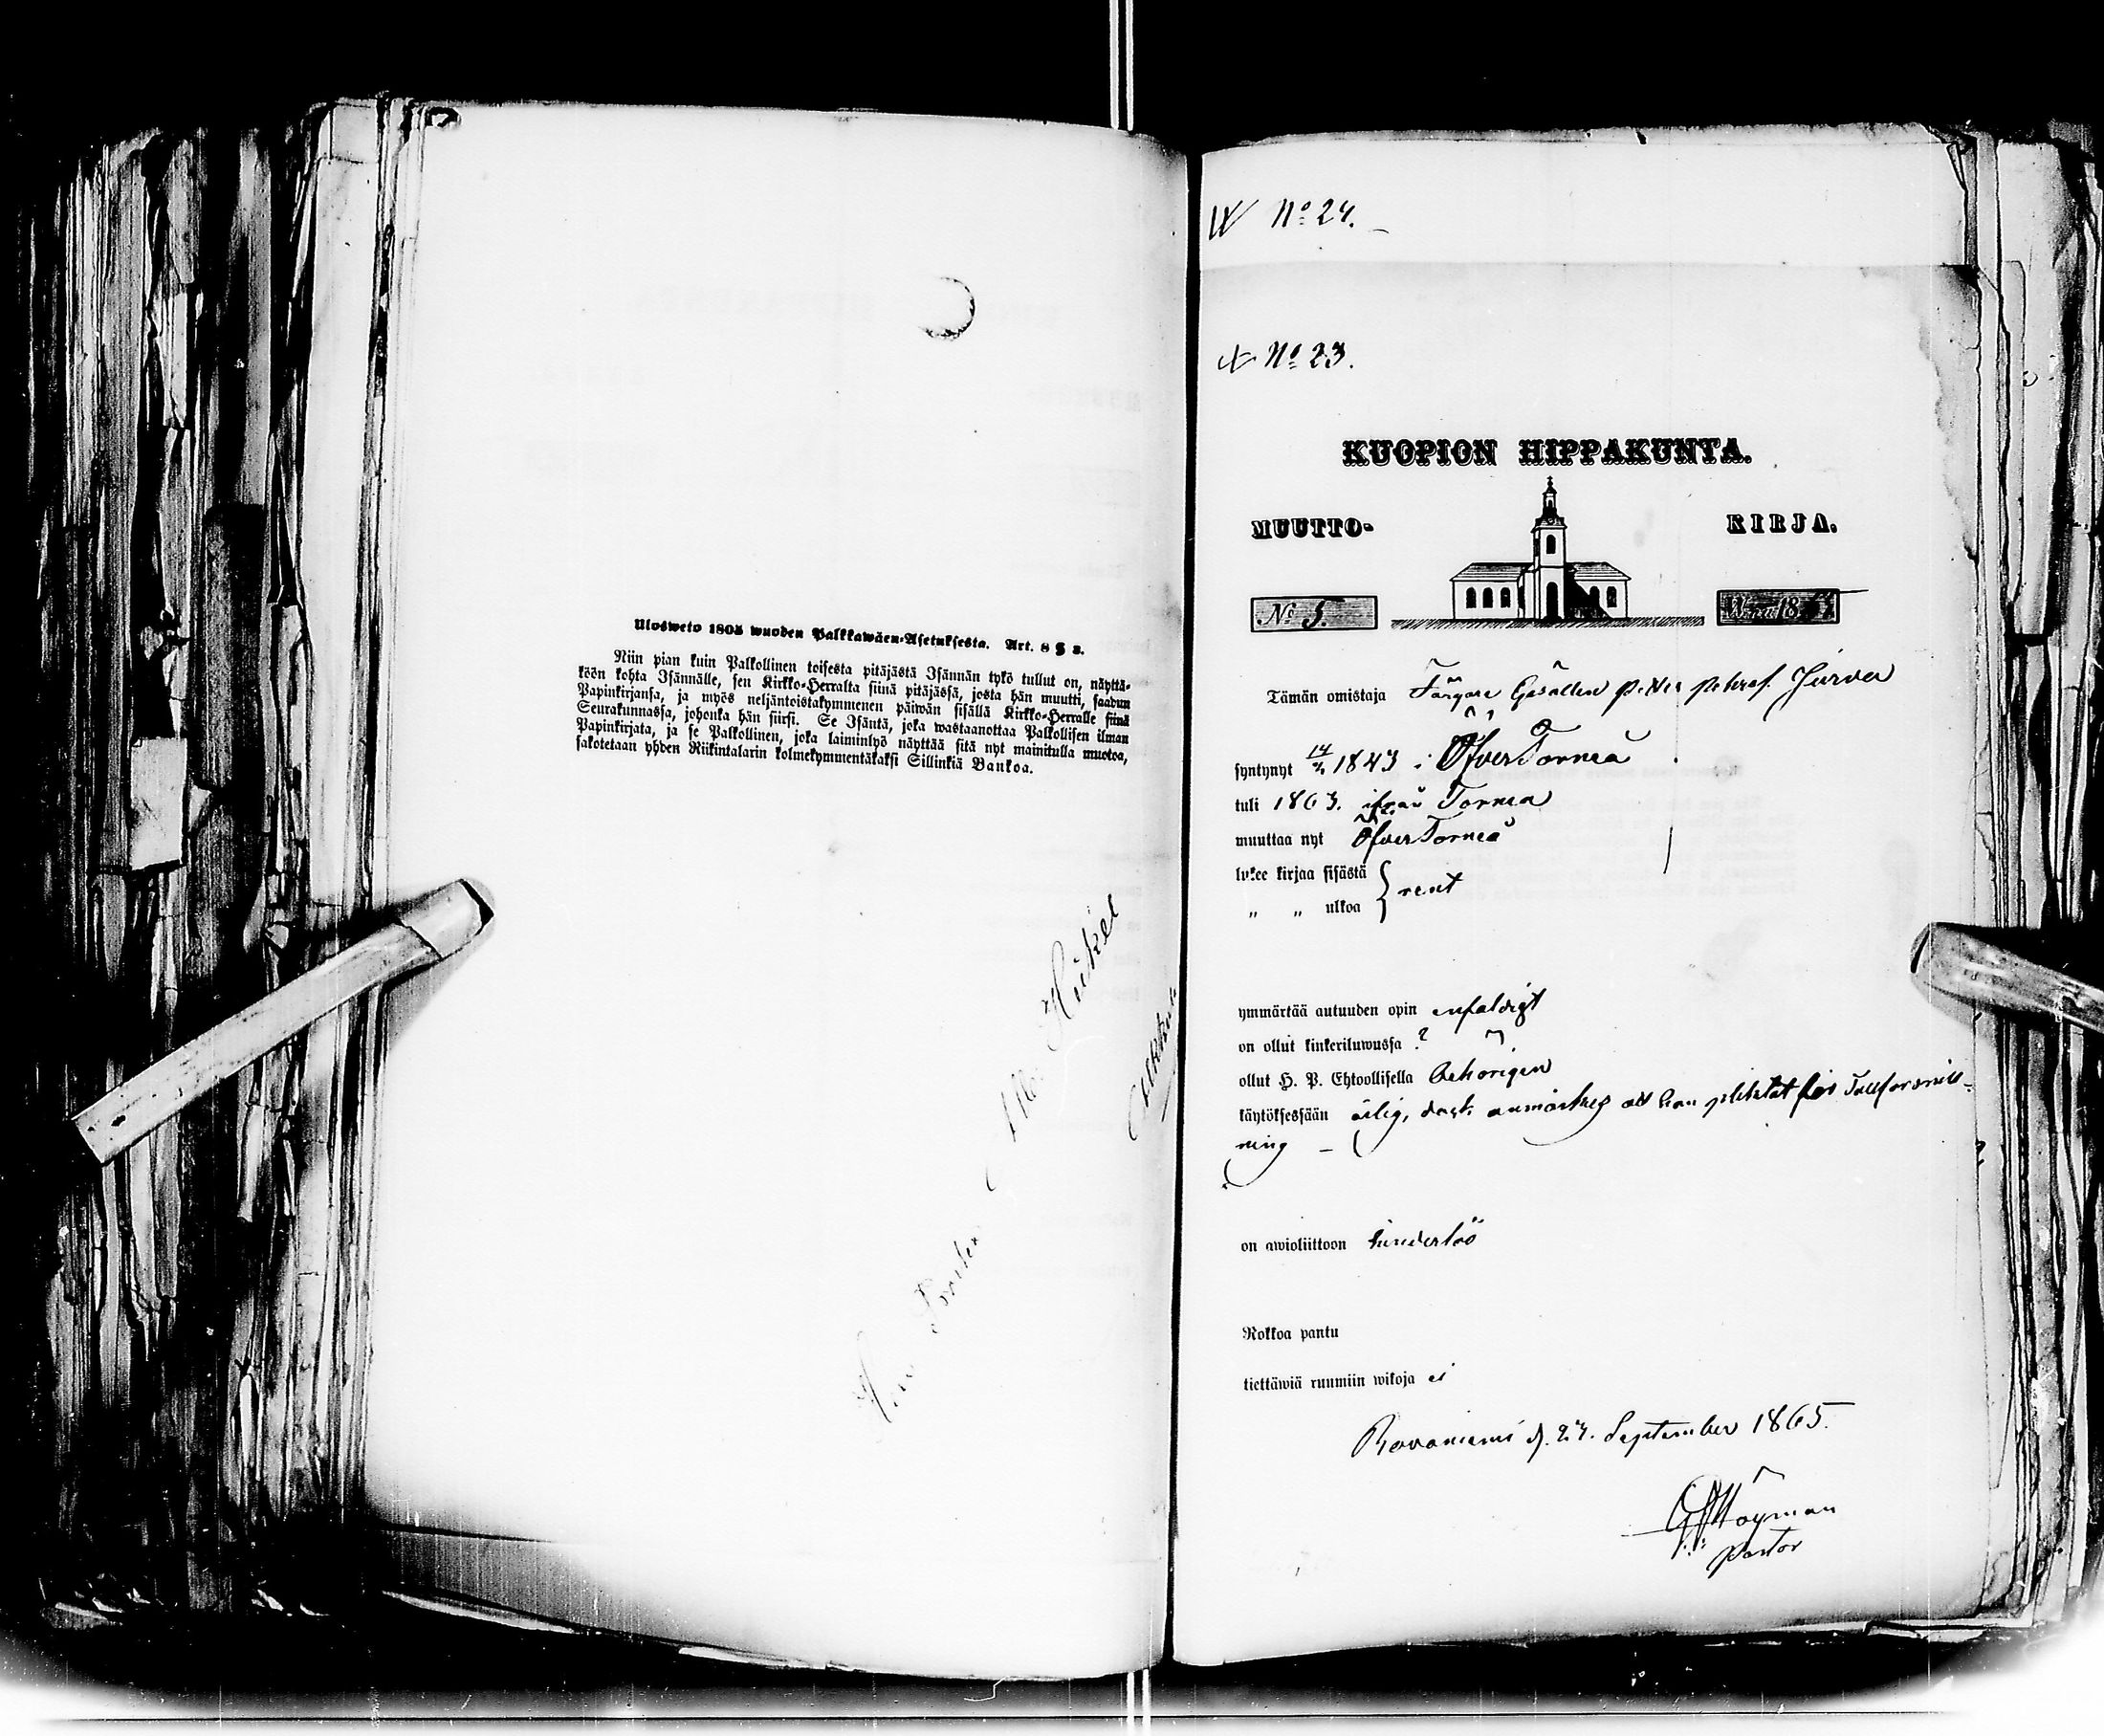 Ulosweto 1805 wuoden Palkkawäen-Asetuksesta. Art. 8 § 3.
Niin pian kuin Palkollinen toisesta pitäjästä Isännän tykö tullut on, näyttä-
köön kohta Isännälle, sen Kirkko-Herralta siinä pitäjässä, josta hän muutti, saadun
Papinkirjansa, ja myös neljäntoistakymmenen päiwän sisällä Kirkko-Herralle siinä
Seurakunnassa, johonka hän siirsi. Se Isäntä, joka wastaanottaa Palkollisen ilman
Papinkirjata, ja se Palkollinen, joka laiminlyö näyttää sitä nyt mainitulla muotoa,
sakotetaan yhden Riikintalarin kolmekymmentäkaksi Sillinkiä Bankoa.
No 24.
No 23.
KUOPION HIPPAKUNTA.
MUUTTO- KIRJA.
No 5. Wna 18
Tämän omistaja Färgare Gesällen Petter Petersf. Jürva
syntynyt 1843 i ÖfverTorneå
tuli 1863. ifrån Torneå
muuttaa nyt ÖfverTorneå
lukee kirjaa sisästä } rent
" " ulkoa
ymmärtää autuuden opin enfaldigt
on ollut kinkeriluwussa ?
ollut H. P. Ehtoollisella behörigen
käytöksessään ärlig, dock anmärkes att han pliktat för Tullförsnill-
ning
on awioliittoon hinderlös
Rokkoa pantu
tiettäwiä ruumiin wikoja ei
Rovaniemi d. 27. September 1865.
Höyman
Pastor